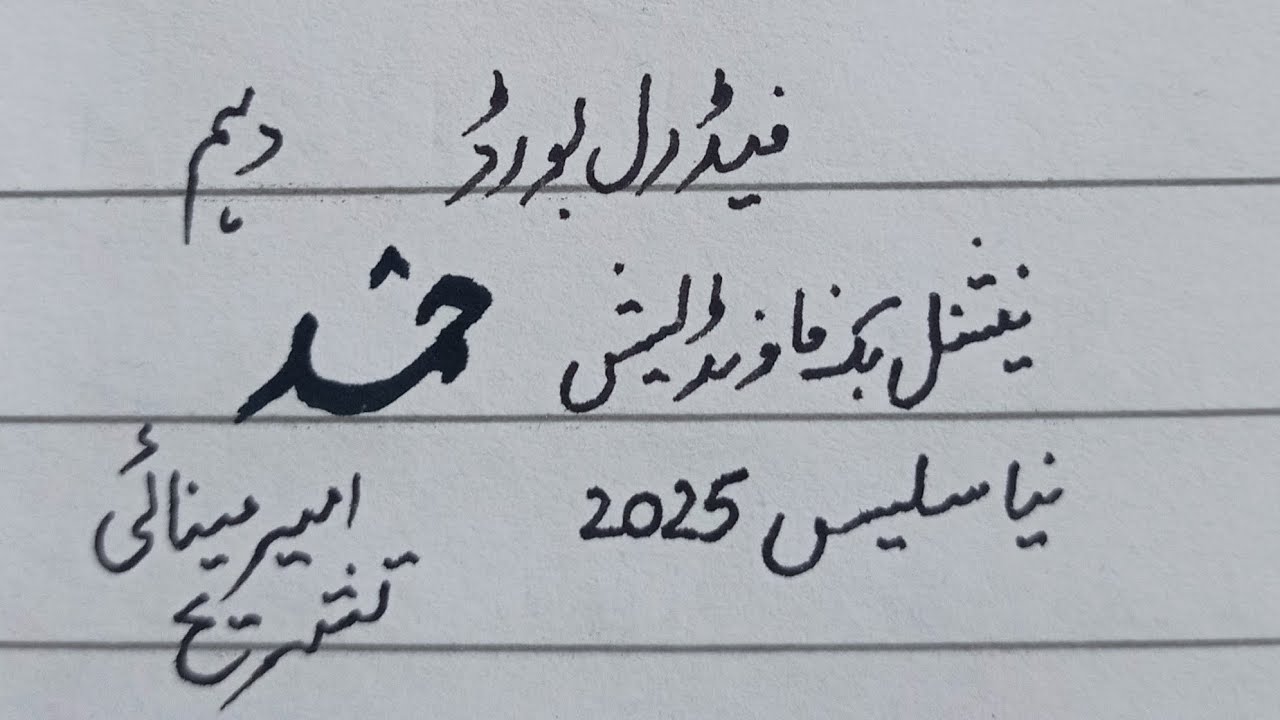 فیڈرل بورڈ دہم
نیشنل بک فاونڈیشن حمد
نیا سلیبس 2025 امیر مینائی
تشریح